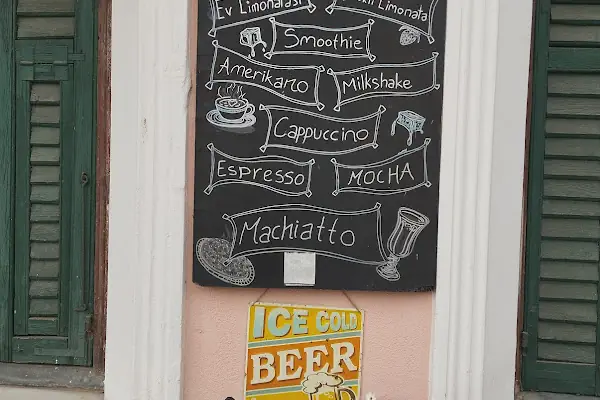 Ev Limonatası
Limonata
Smoothie
Amerikano
Milkshake
Cappuccino
Espresso
MOCHA
Machiatto
ICE COLD
BEER